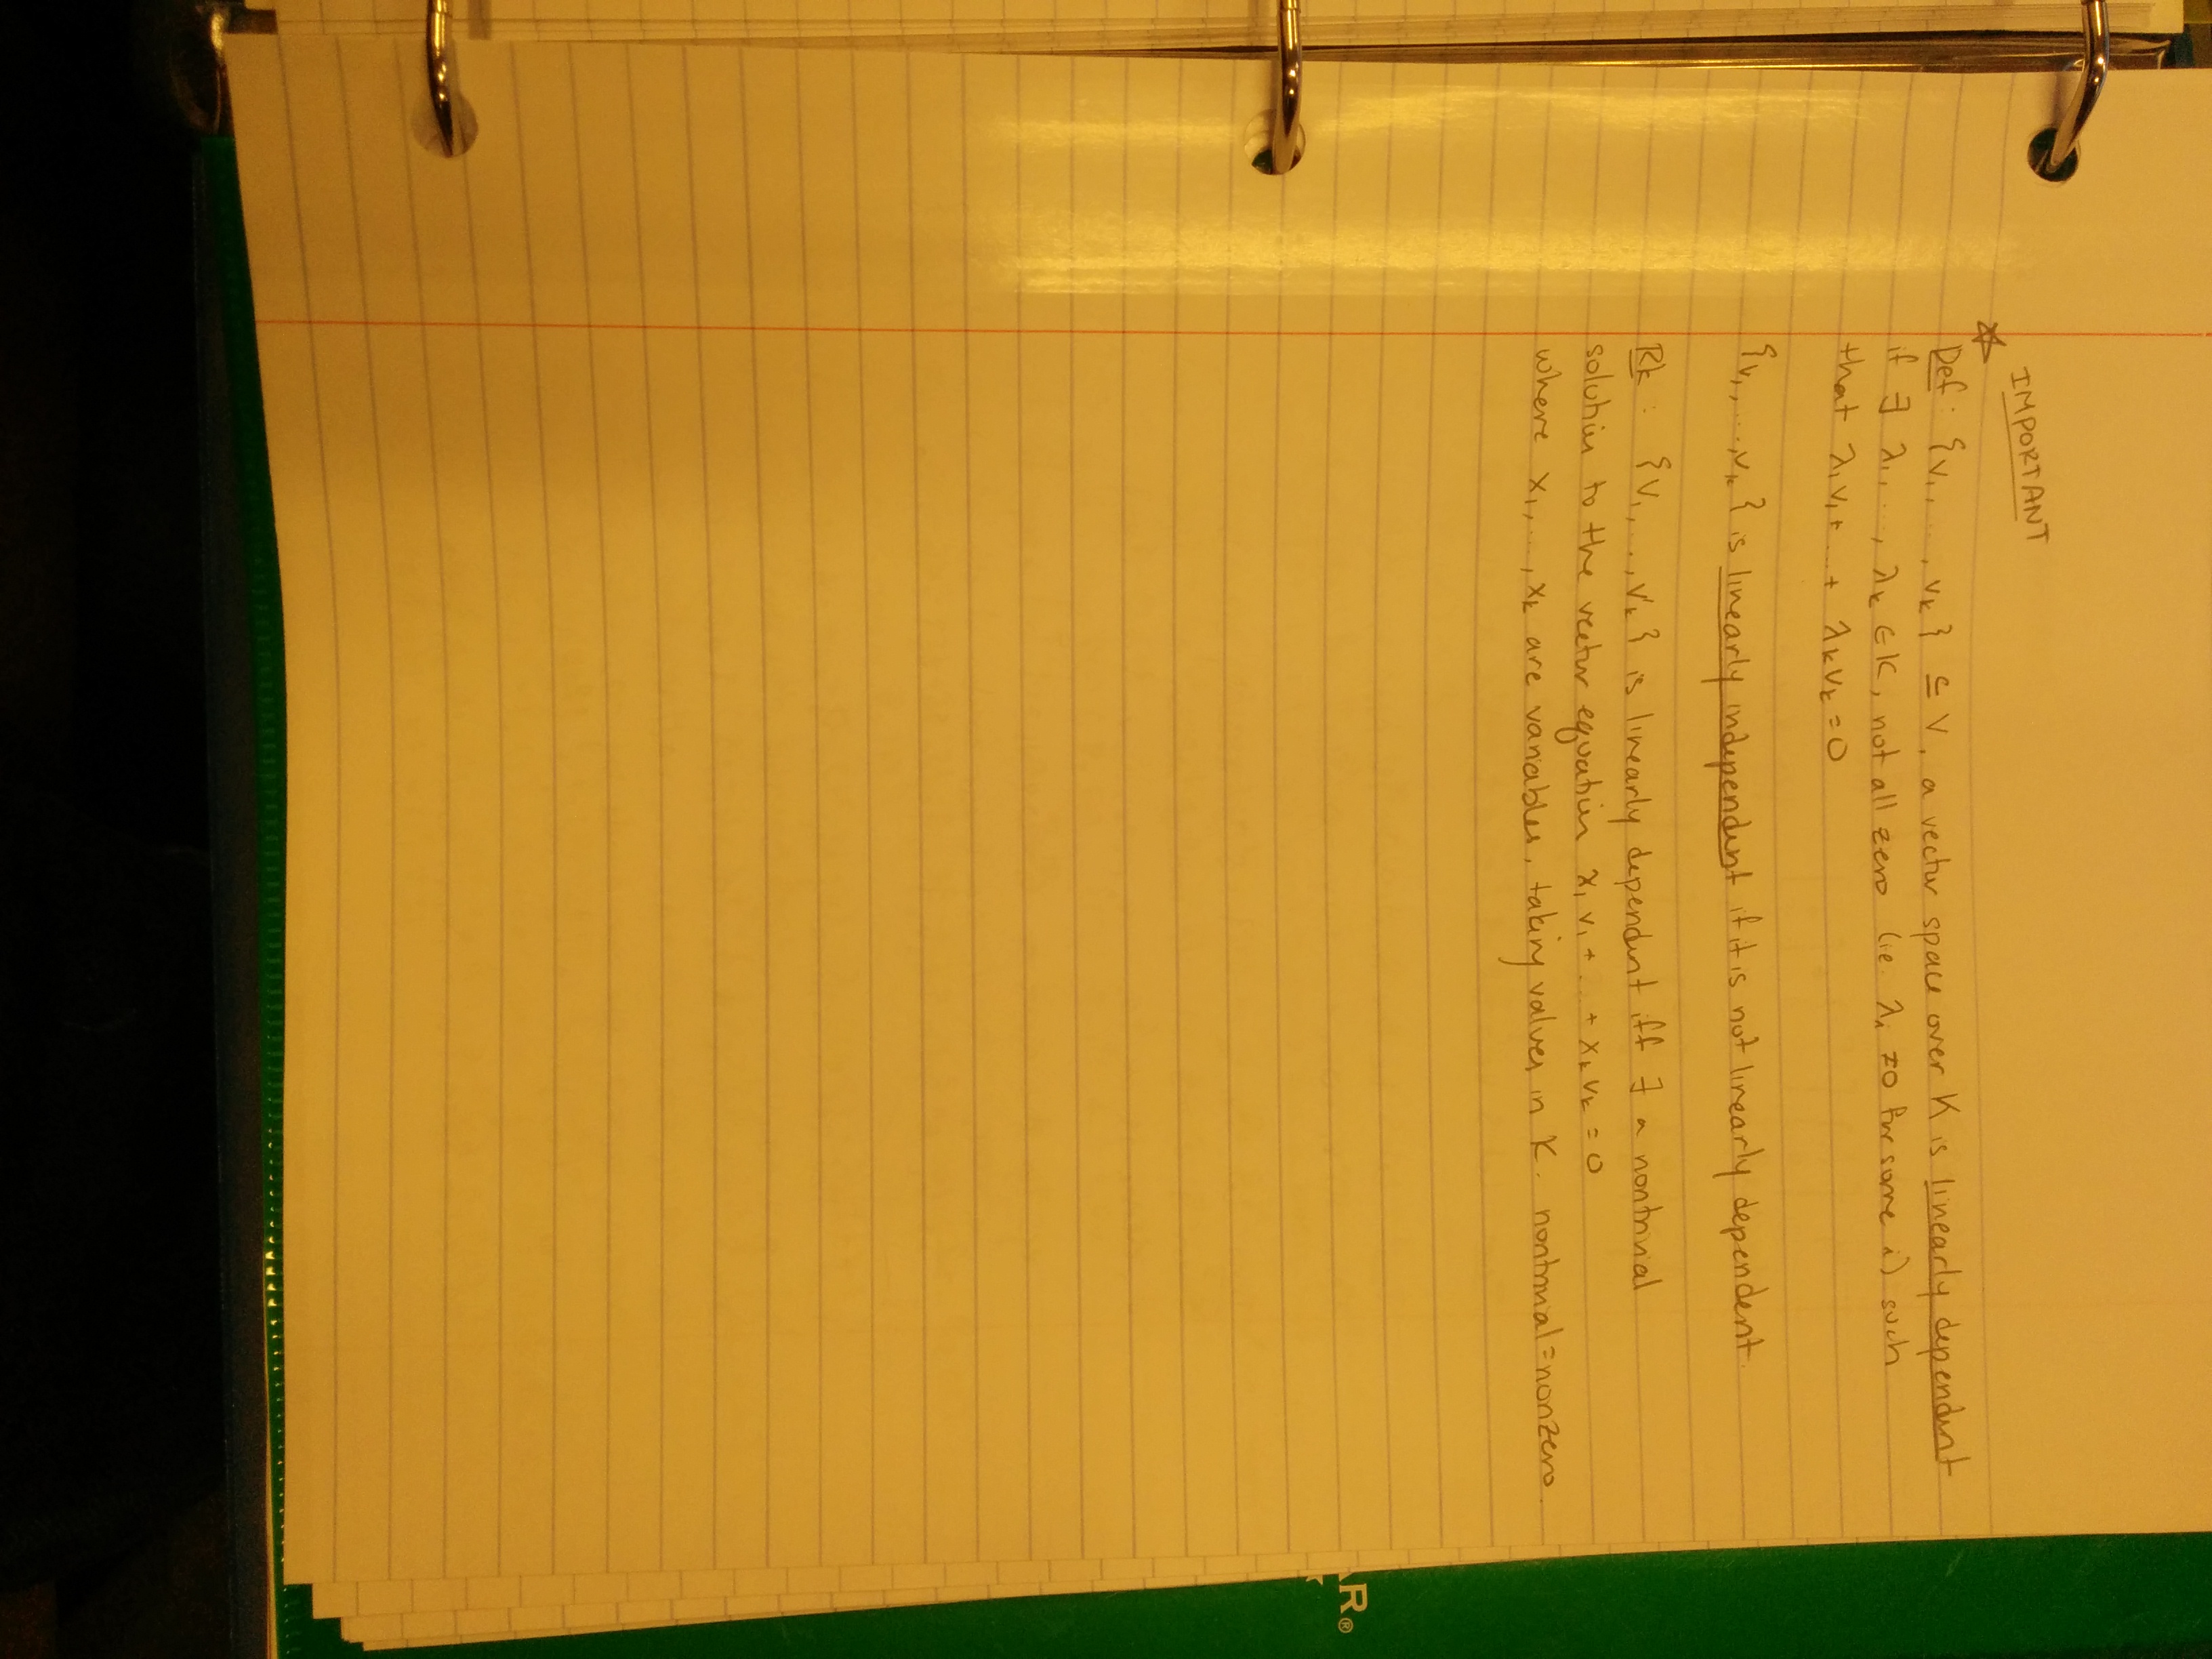 IMPORTANT
☆ Def: {v₁, ..., vₖ} ⊆ V, a vector space over K is linearly dependent
if ∃ λ₁, ..., λₖ ∈ K, not all zero (i.e. λᵢ ≠0 for some i) such
that λ₁v₁ + ... + λₖvₖ = 0
{v₁, ..., vₖ} is linearly independent if it is not linearly dependent.
Rk: {v₁, ..., vₖ} is linearly dependent iff ∃ a nontrivial
solution to the vector equation x₁v₁ + ... + xₖvₖ = 0
where x₁, ..., xₖ are variables, taking values in K. nontrivial = nonzero.
AR®